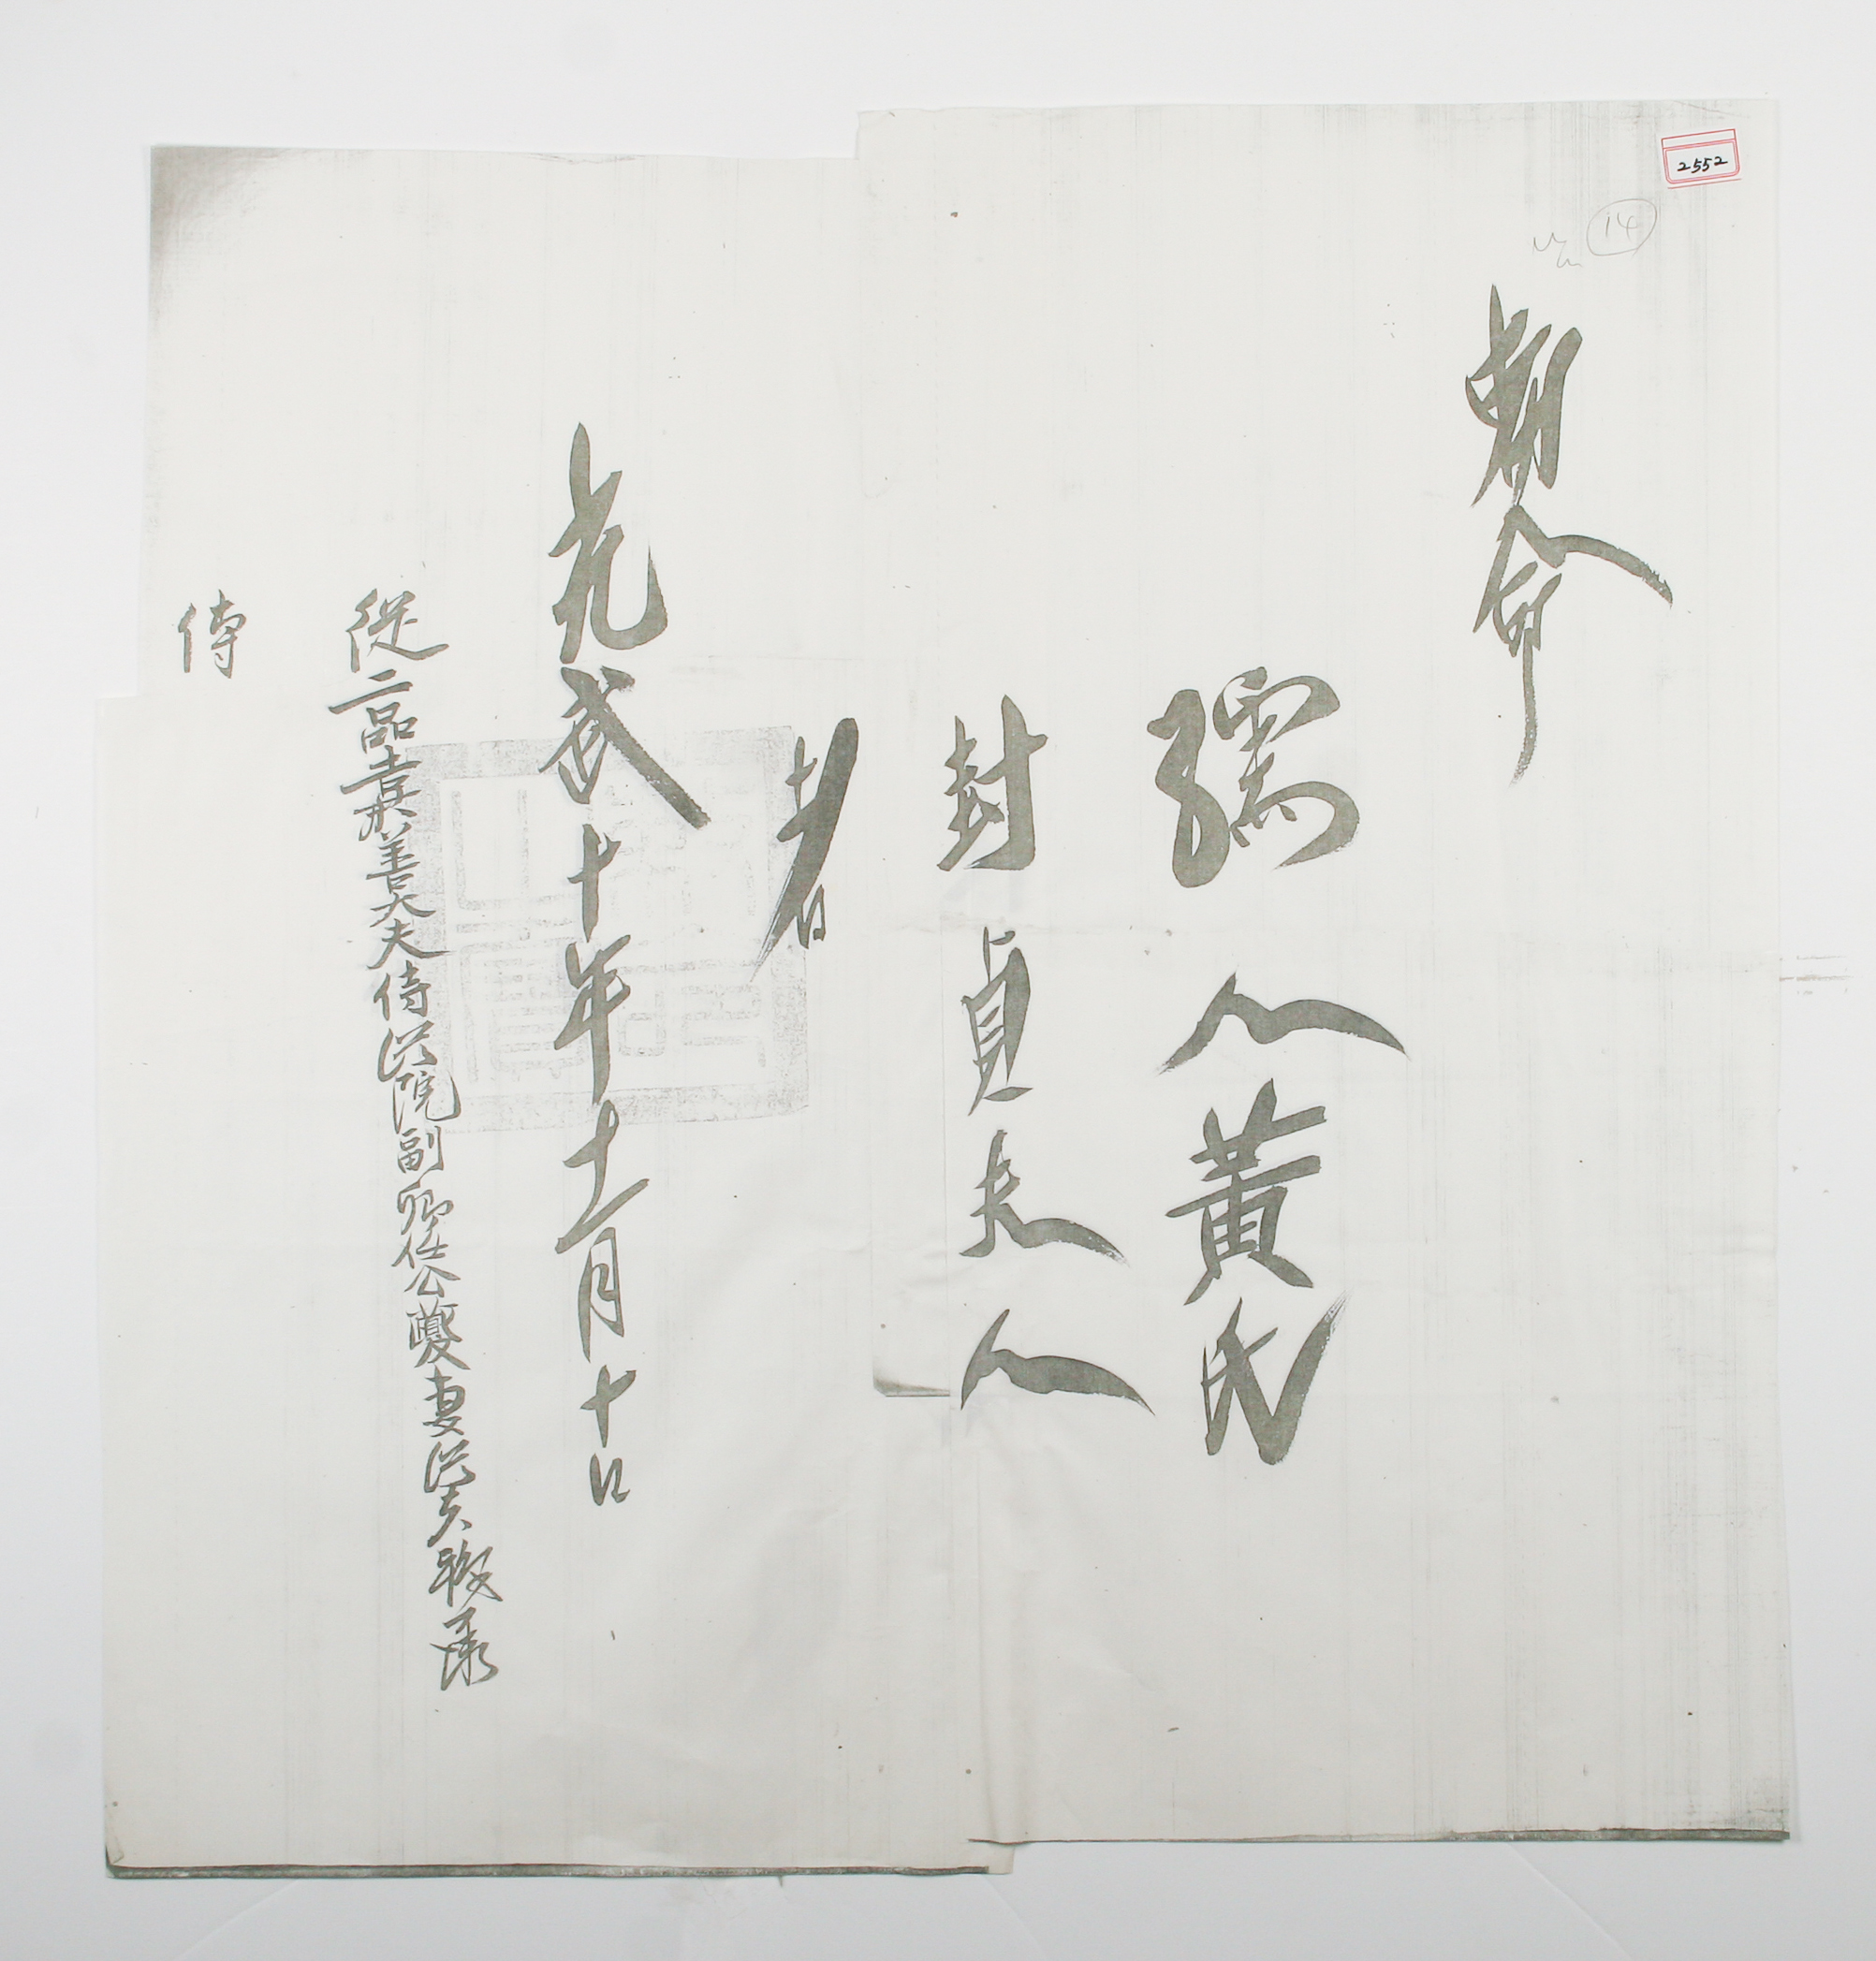 2552
14
朝命
孺人黃氏
封貞夫人
者
光武十年十一月十日
從二品嘉善大夫侍從院副卿任公夔妻從夫職承
傳